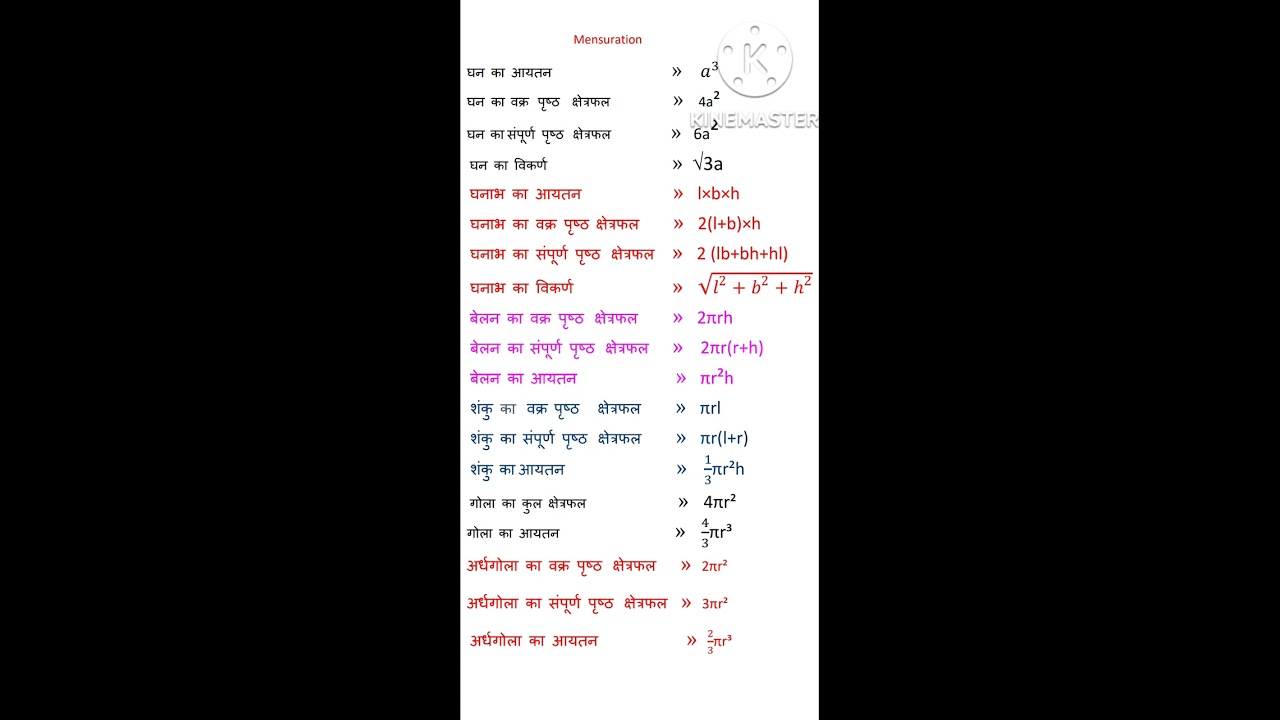 Mensuration
घन का आयतन » a³
घन का वक्र पृष्ठ क्षेत्रफल » 4a²
KINEMASTER
घन का संपूर्ण पृष्ठ क्षेत्रफल » 6a²
घन का विकर्ण » √3a
घनाभ का आयतन » l×b×h
घनाभ का वक्र पृष्ठ क्षेत्रफल » 2(l+b)×h
घनाभ का संपूर्ण पृष्ठ क्षेत्रफल » 2 (lb+bh+hl)
घनाभ का विकर्ण » √(l² + b² + h²)
बेलन का वक्र पृष्ठ क्षेत्रफल » 2πrh
बेलन का संपूर्ण पृष्ठ क्षेत्रफल » 2πr(r+h)
बेलन का आयतन » πr²h
शंकु का वक्र पृष्ठ क्षेत्रफल » πrl
शंकु का संपूर्ण पृष्ठ क्षेत्रफल » πr(l+r)
शंकु का आयतन » 1/3πr²h
गोला का कुल क्षेत्रफल » 4πr²
गोला का आयतन » 4/3πr³
अर्धगोला का वक्र पृष्ठ क्षेत्रफल » 2πr²
अर्धगोला का संपूर्ण पृष्ठ क्षेत्रफल » 3πr²
अर्धगोला का आयतन » 2/3πr³